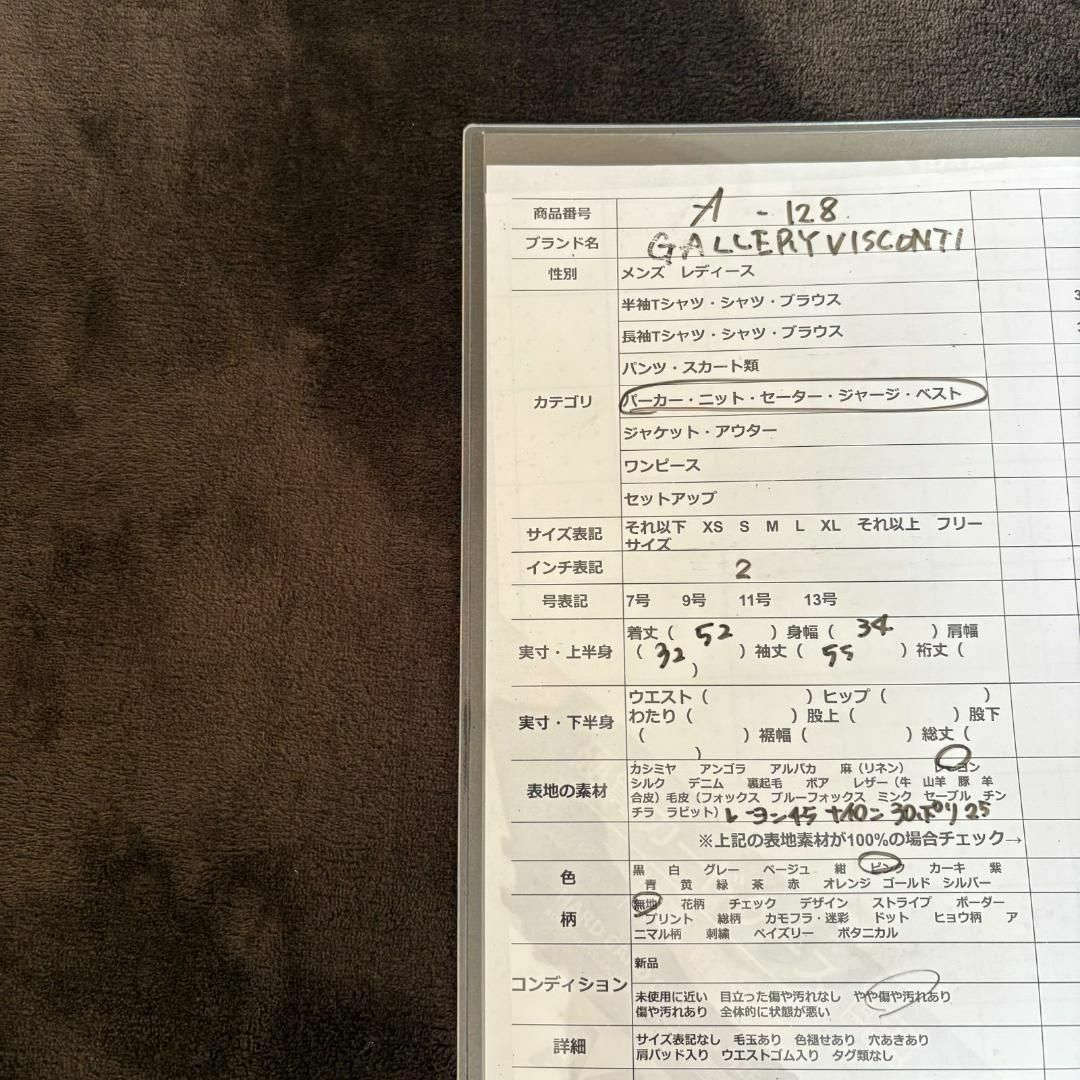 商品番号 A - 128
ブランド名 GALLERYVISCONTI
性別 メンズ レディース
カテゴリ
半袖Tシャツ・シャツ・ブラウス 3
長袖Tシャツ・シャツ・ブラウス
パンツ・スカート類
パーカー・ニット・セーター・ジャージ・ベスト
ジャケット・アウター
ワンピース
セットアップ
サイズ表記 それ以下 XS S M L XL それ以上 フリー
サイズ
インチ表記 2
号表記 7号 9号 11号 13号
実寸・上半身 着丈（ 52 ）身幅（ 34 ）肩幅
（ 32 ）袖丈（ 55 ）裄丈（
）
実寸・下半身 ウエスト（ ）ヒップ（ ）
わたり（ ）股上（ ）股下
（ ）裾幅（ ）総丈（
）
表地の素材 カシミヤ アンゴラ アルパカ 麻（リネン） レーヨン
シルク デニム 裏起毛 ボア レザー（牛 山羊 豚 羊
合皮）毛皮（フォックス ブルーフォックス ミンク セーブル チン
チラ ラビット） レーヨン45 ナイロン30.ポリ25
※上記の表地素材が100%の場合チェック→
色 黒 白 グレー ベージュ 紺 ピンク カーキ 紫
青 黄 緑 茶 赤 オレンジ ゴールド シルバー
柄 無地 花柄 チェック デザイン ストライプ ボーダー
プリント 総柄 カモフラ・迷彩 ドット ヒョウ柄 ア
ニマル柄 刺繍 ペイズリー ボタニカル
コンディション 新品
未使用に近い 目立った傷や汚れなし やや傷や汚れあり
傷や汚れあり 全体的に状態が悪い
詳細 サイズ表記なし 毛玉あり 色褪せあり 穴あきあり
肩パッド入り ウエストゴム入り タグ類なし